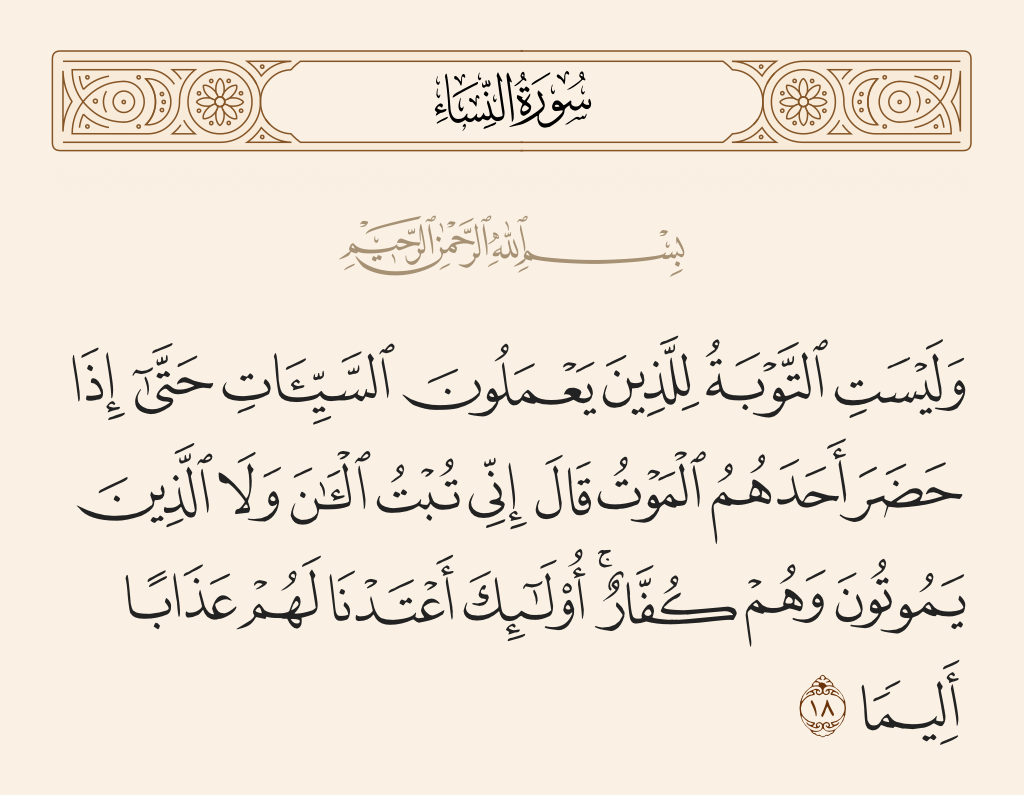 سُورَةُ النِّسَاءِ
بِسْمِ ٱللَّهِ ٱلرَّحْمَٰنِ ٱلرَّحِيمِ
وَلَيْسَتِ ٱلتَّوْبَةُ لِلَّذِينَ يَعْمَلُونَ ٱلسَّيِّـَٔاتِ حَتَّىٰٓ إِذَا
حَضَرَ أَحَدَهُمُ ٱلْمَوْتُ قَالَ إِنِّى تُبْتُ ٱلْـَٰٔنَ وَلَا ٱلَّذِينَ
يَمُوتُونَ وَهُمْ كُفَّارٌ ۚ أُو۟لَـٰٓئِكَ أَعْتَدْنَا لَهُمْ عَذَابًا
أَلِيمًا ١٨